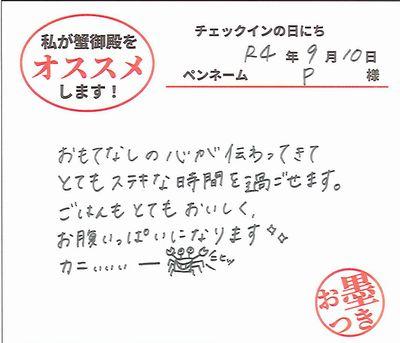 私が蟹御殿を
オススメ
します！
チェックインの日にち
R4 年 9 月 10 日
ペンネーム P 様
おもてなしの心が伝わってきて
とてもステキな時間を過ごせます。
ごはんもとてもおいしく、
お腹いっぱいになります
カニぃぃぃー
お墨つき